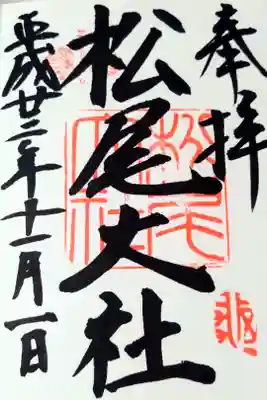 奉拝
松尾大社
松尾大社
平成廿三年十一月一日